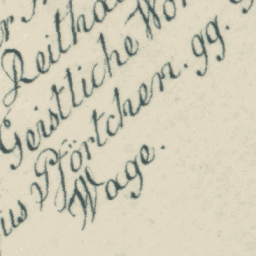 Reitha
Geistliche Wor
ius Pförtchen. gg. G
Wage.